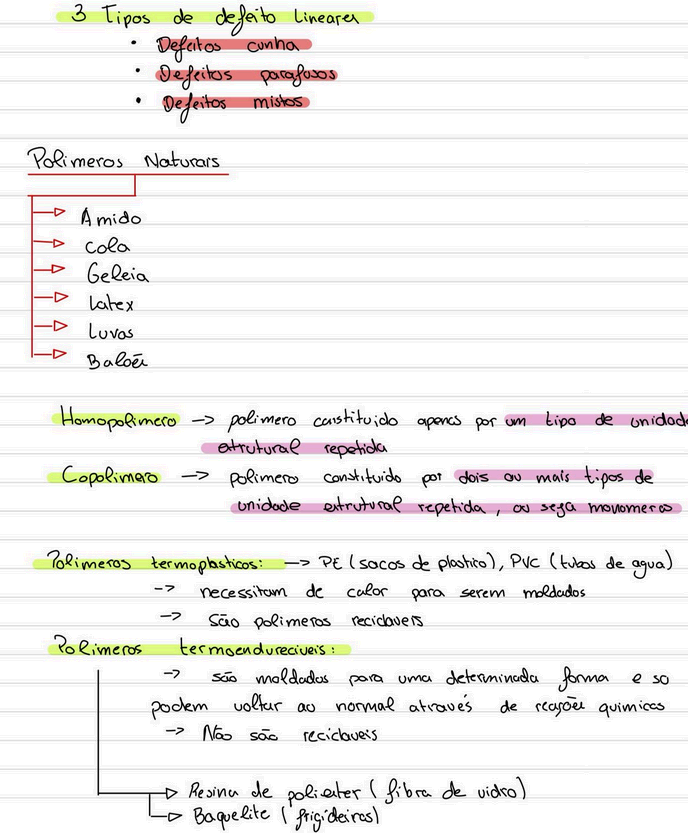 3 Tipos de defeito Lineares
• Defeitos cunha
• Defeitos parafusos
• Defeitos mistos
Polimeros Naturais
Amido
Cola
Geleia
Latex
Luvas
Balões
Homopolimero -> polimero constituido apenas por um tipo de unidade
estrutural repetida
Copolimero -> polimero constituido por dois ou mais tipos de
unidade estrutural repetida, ou seja monomeros
Polimeros termoplasticos: -> PE (sacos de plastico), PVC (tubos de agua)
-> necessitam de calor para serem moldados
-> São polimeros reciclaveis
Polimeros termoendureciveis:
-> são moldados para uma determinada forma e so
podem voltar ao normal através de reações quimicas
-> Não são reciclaveis
Resina de poliester (fibra de vidro)
Baquelite (frigideiras)